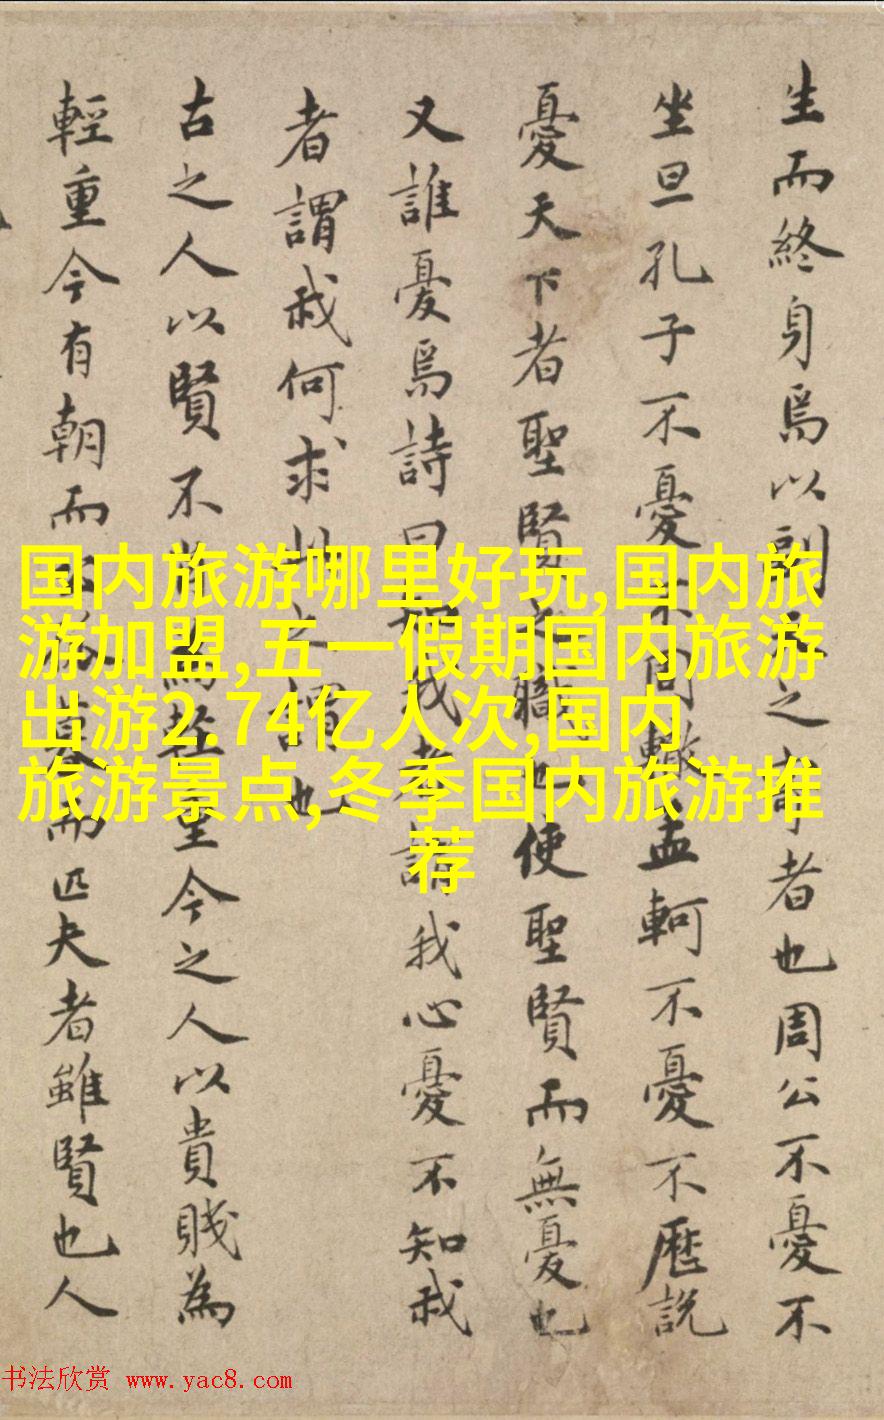 生而終身焉以副之者也周公不憂不
坐旦孔子不憂不問轍孟軻不憂不歷說
憂天下者聖賢之職也使聖賢而無憂也
又誰憂焉詩曰知我者謂我心憂不知我
者謂我何求此之謂也
古之人以賢不肖為輕重今之人以貴賤為
輕重今有朝而孤暮而匹夫者雖賢也人
国内旅游哪里好玩,国内旅
游加盟,五一假期国内旅游
出游2.74亿人次,国内
旅游景点,冬季国内旅游推
荐
书法欣赏 www.yac8.com